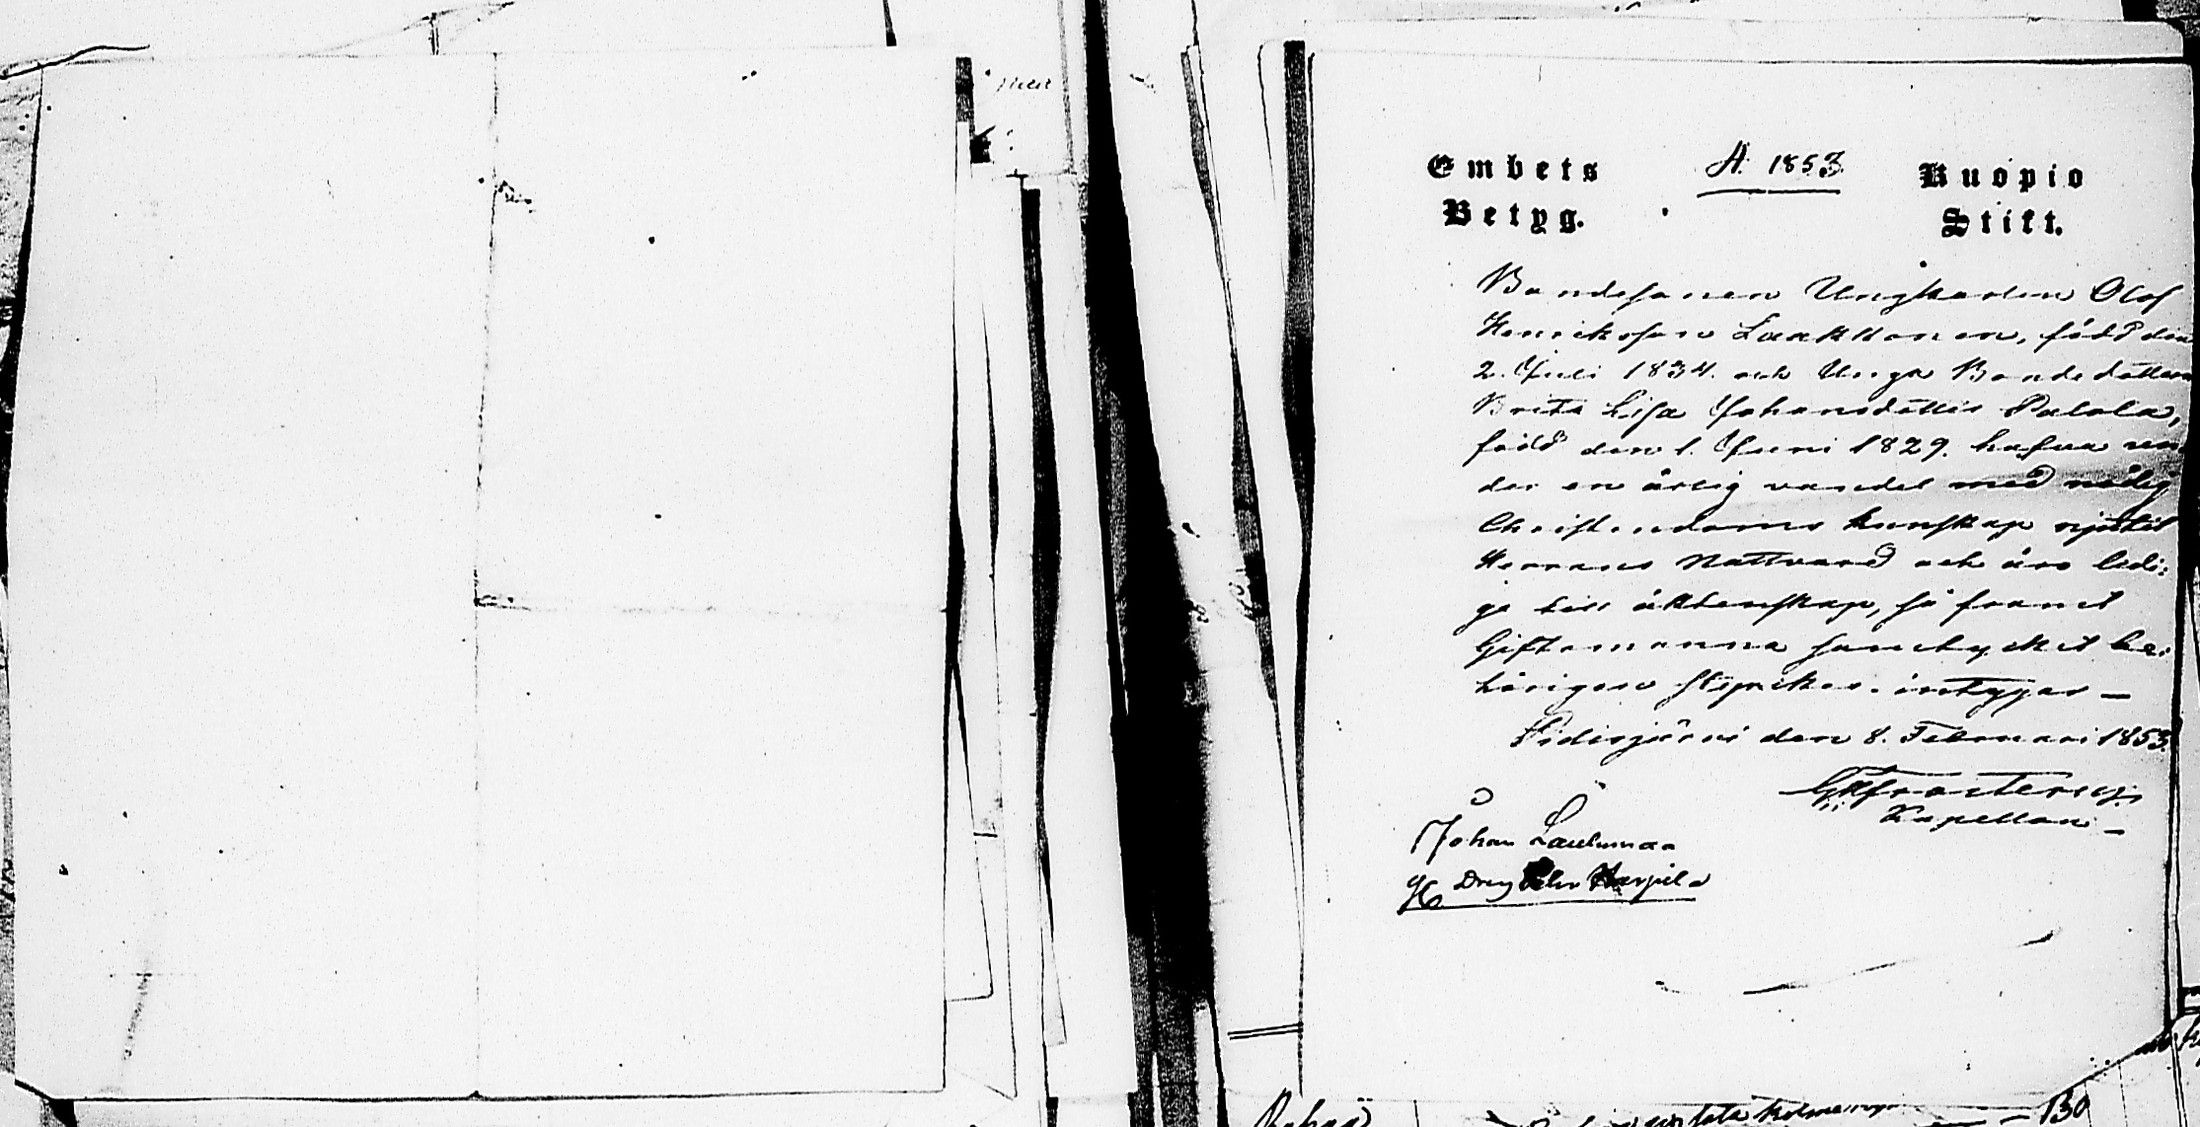 Embets Betyg.
A. 1853.
Kuopio Stift.
Bondesonen Ungkarlen Olof
Henriksson Laakkonen, född den
2. Juli 1834. och Unga Bondedottern
Brita Lisa Johansdotter Palola,
född den 1. Juni 1829. hafva un
der en ärlig vandel med nödig
Christendoms kunskap njutit
Herrans Nattvard och äro ledi:
ga till äktenskap, så framt
Giftomanna samtycket be:
hörigen styrckes. intygar —
Pidisjärvi den 8. Februari 1853.
Kapellan. —
Johan
130